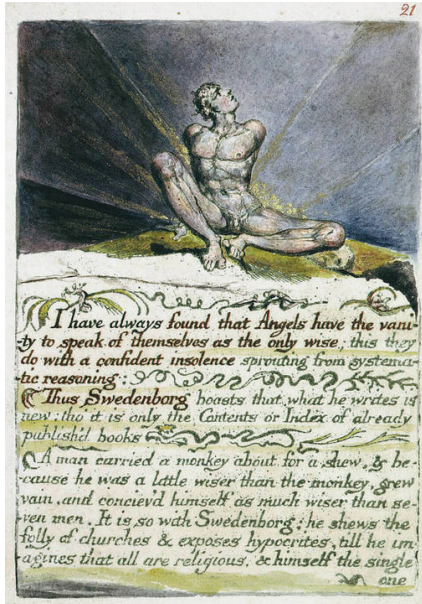 21
I have always found that Angels have the vani-
-ty to speak of themselves as the only wise; this they
do with a confident insolence sprouting from systema-
-tic reasoning:
Thus Swedenborg boasts that what he writes is
new: tho it is only the Contents or Index of already
publish'd books
A man carried a monkey about for a shew, & be-
cause he was a little wiser than the monkey, grew
vain, and conciev'd himself as much wiser than se-
ven men. It is so with Swedenborg: he shews the
folly of churches & exposes hypocrites, till he im-
agines that all are religious, & himself the single
one